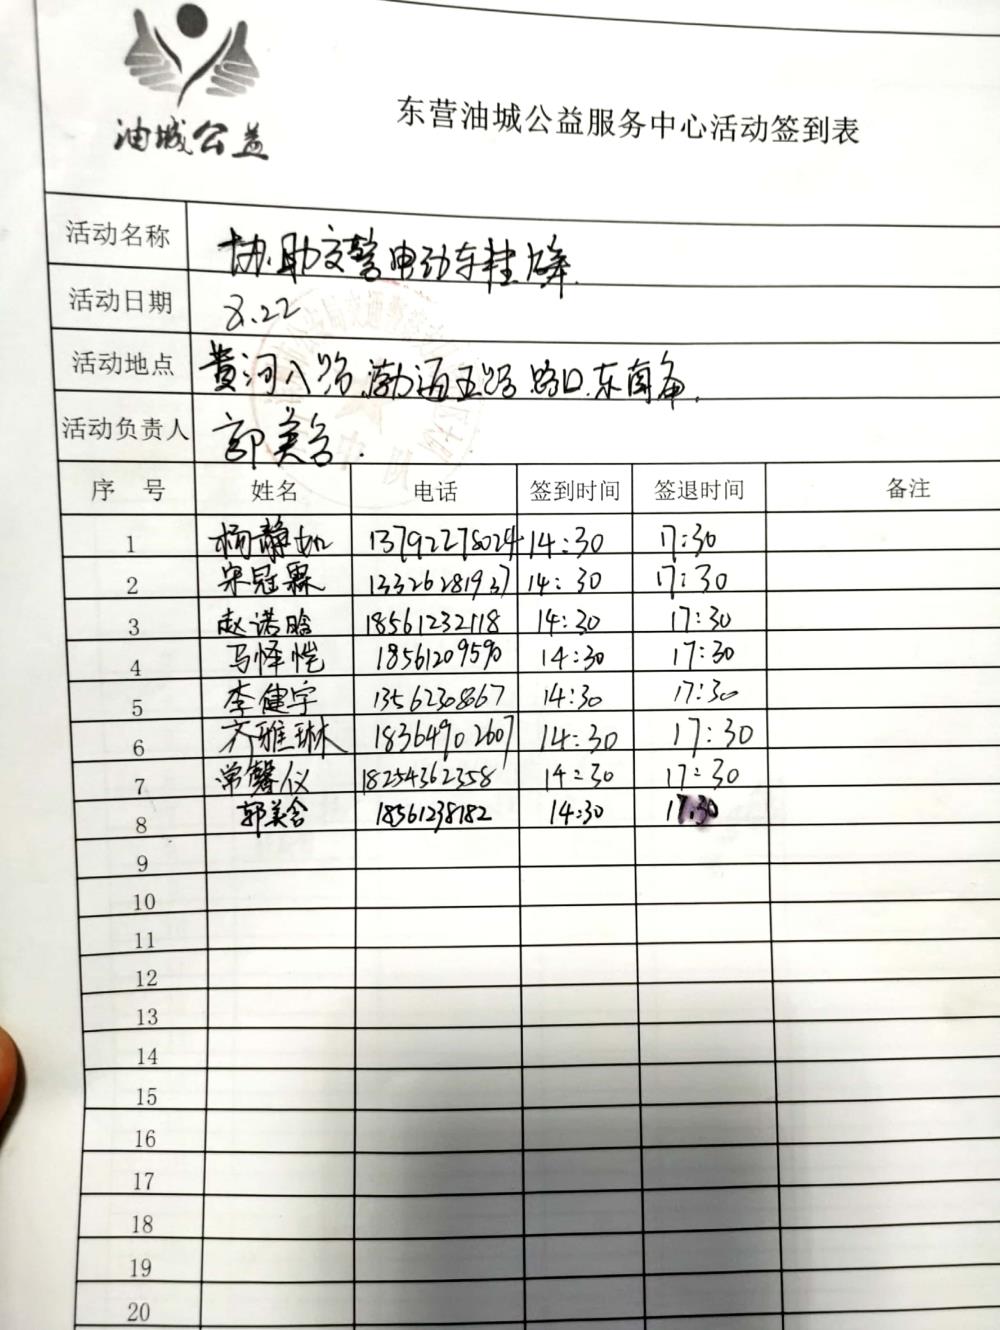 油城公益
东营油城公益服务中心活动签到表
活动名称 协助交警电动车挂牌.
活动日期 8.22
活动地点 黄河八路.渤海五路 路口.东南角.
活动负责人 郭美含.
序 号 姓名 电话 签到时间 签退时间 备注
1 杨静如 13792278024 14:30 17:30
2 宋冠霖 13326281937 14:30 17:30
3 赵诺晗 18561232118 14:30 17:30
4 马怿恺 18561209590 14:30 17:30
5 李健宇 13562308867 14:30 17:30
6 齐雅琳 18364902607 14:30 17:30
7 常馨仪 18254362358 14:30 17:30
8 郭美含 18561238182 14:30 17:30
9
10
11
12
13
14
15
16
17
18
19
20